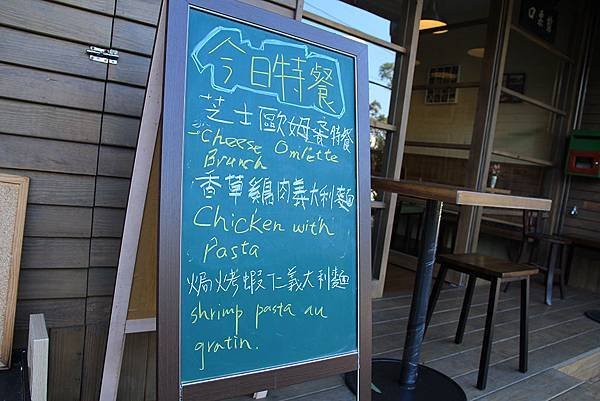 今日特餐
芝士歐姆蛋特餐
Cheese Omlette
Brunch
香草雞肉義大利麵
Chicken with
Pasta
焗烤蝦仁義大利麵
shrimp pasta au
gratin.